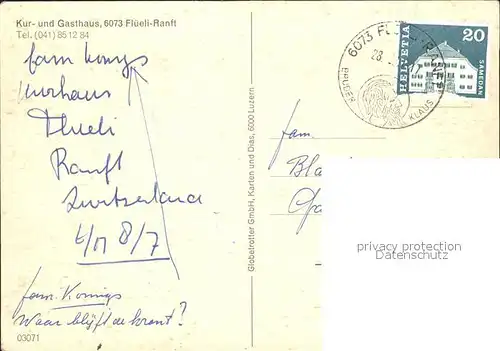 Kur- und Gasthaus, 6073 Flüeli-Ranft
Tel. (041) 85 12 84
fam Konigs
Kurhaus
Flueli
Ranft
Zwitserland
t/m 8/7
fam. Konings
Waar blijft de krant?
03071
Globetrotter GmbH, Karten und Dias, 6000 Luzern
6073 FLÜELI-RANFT
28
BRUDER KLAUS
HELVETIA
20
SAMEDAN
fam.
Bla
privacy protection
Datenschutz